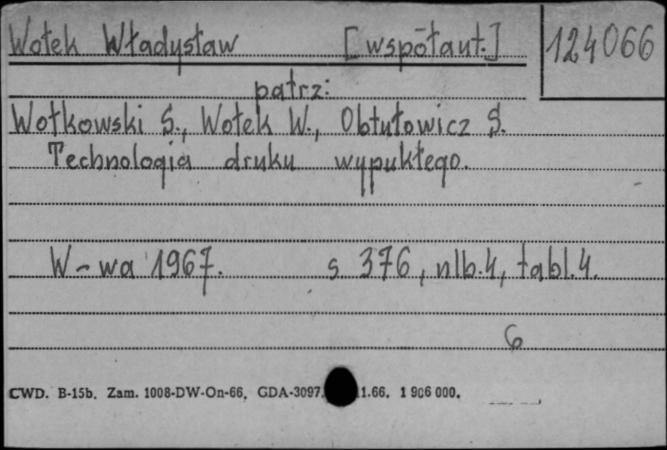 Wołek Władysław [współaut.] 124066
patrz:
Wołkowski S., Wołek W., Obtułowicz S.
Technologia druku wypukłego.
W-wa 1967. s 376, nlb.4, tabl.4.
6
CWD. B-15b. Zam. 1008-DW-On-66, GDA-3097. 1.66. 1 906 000.